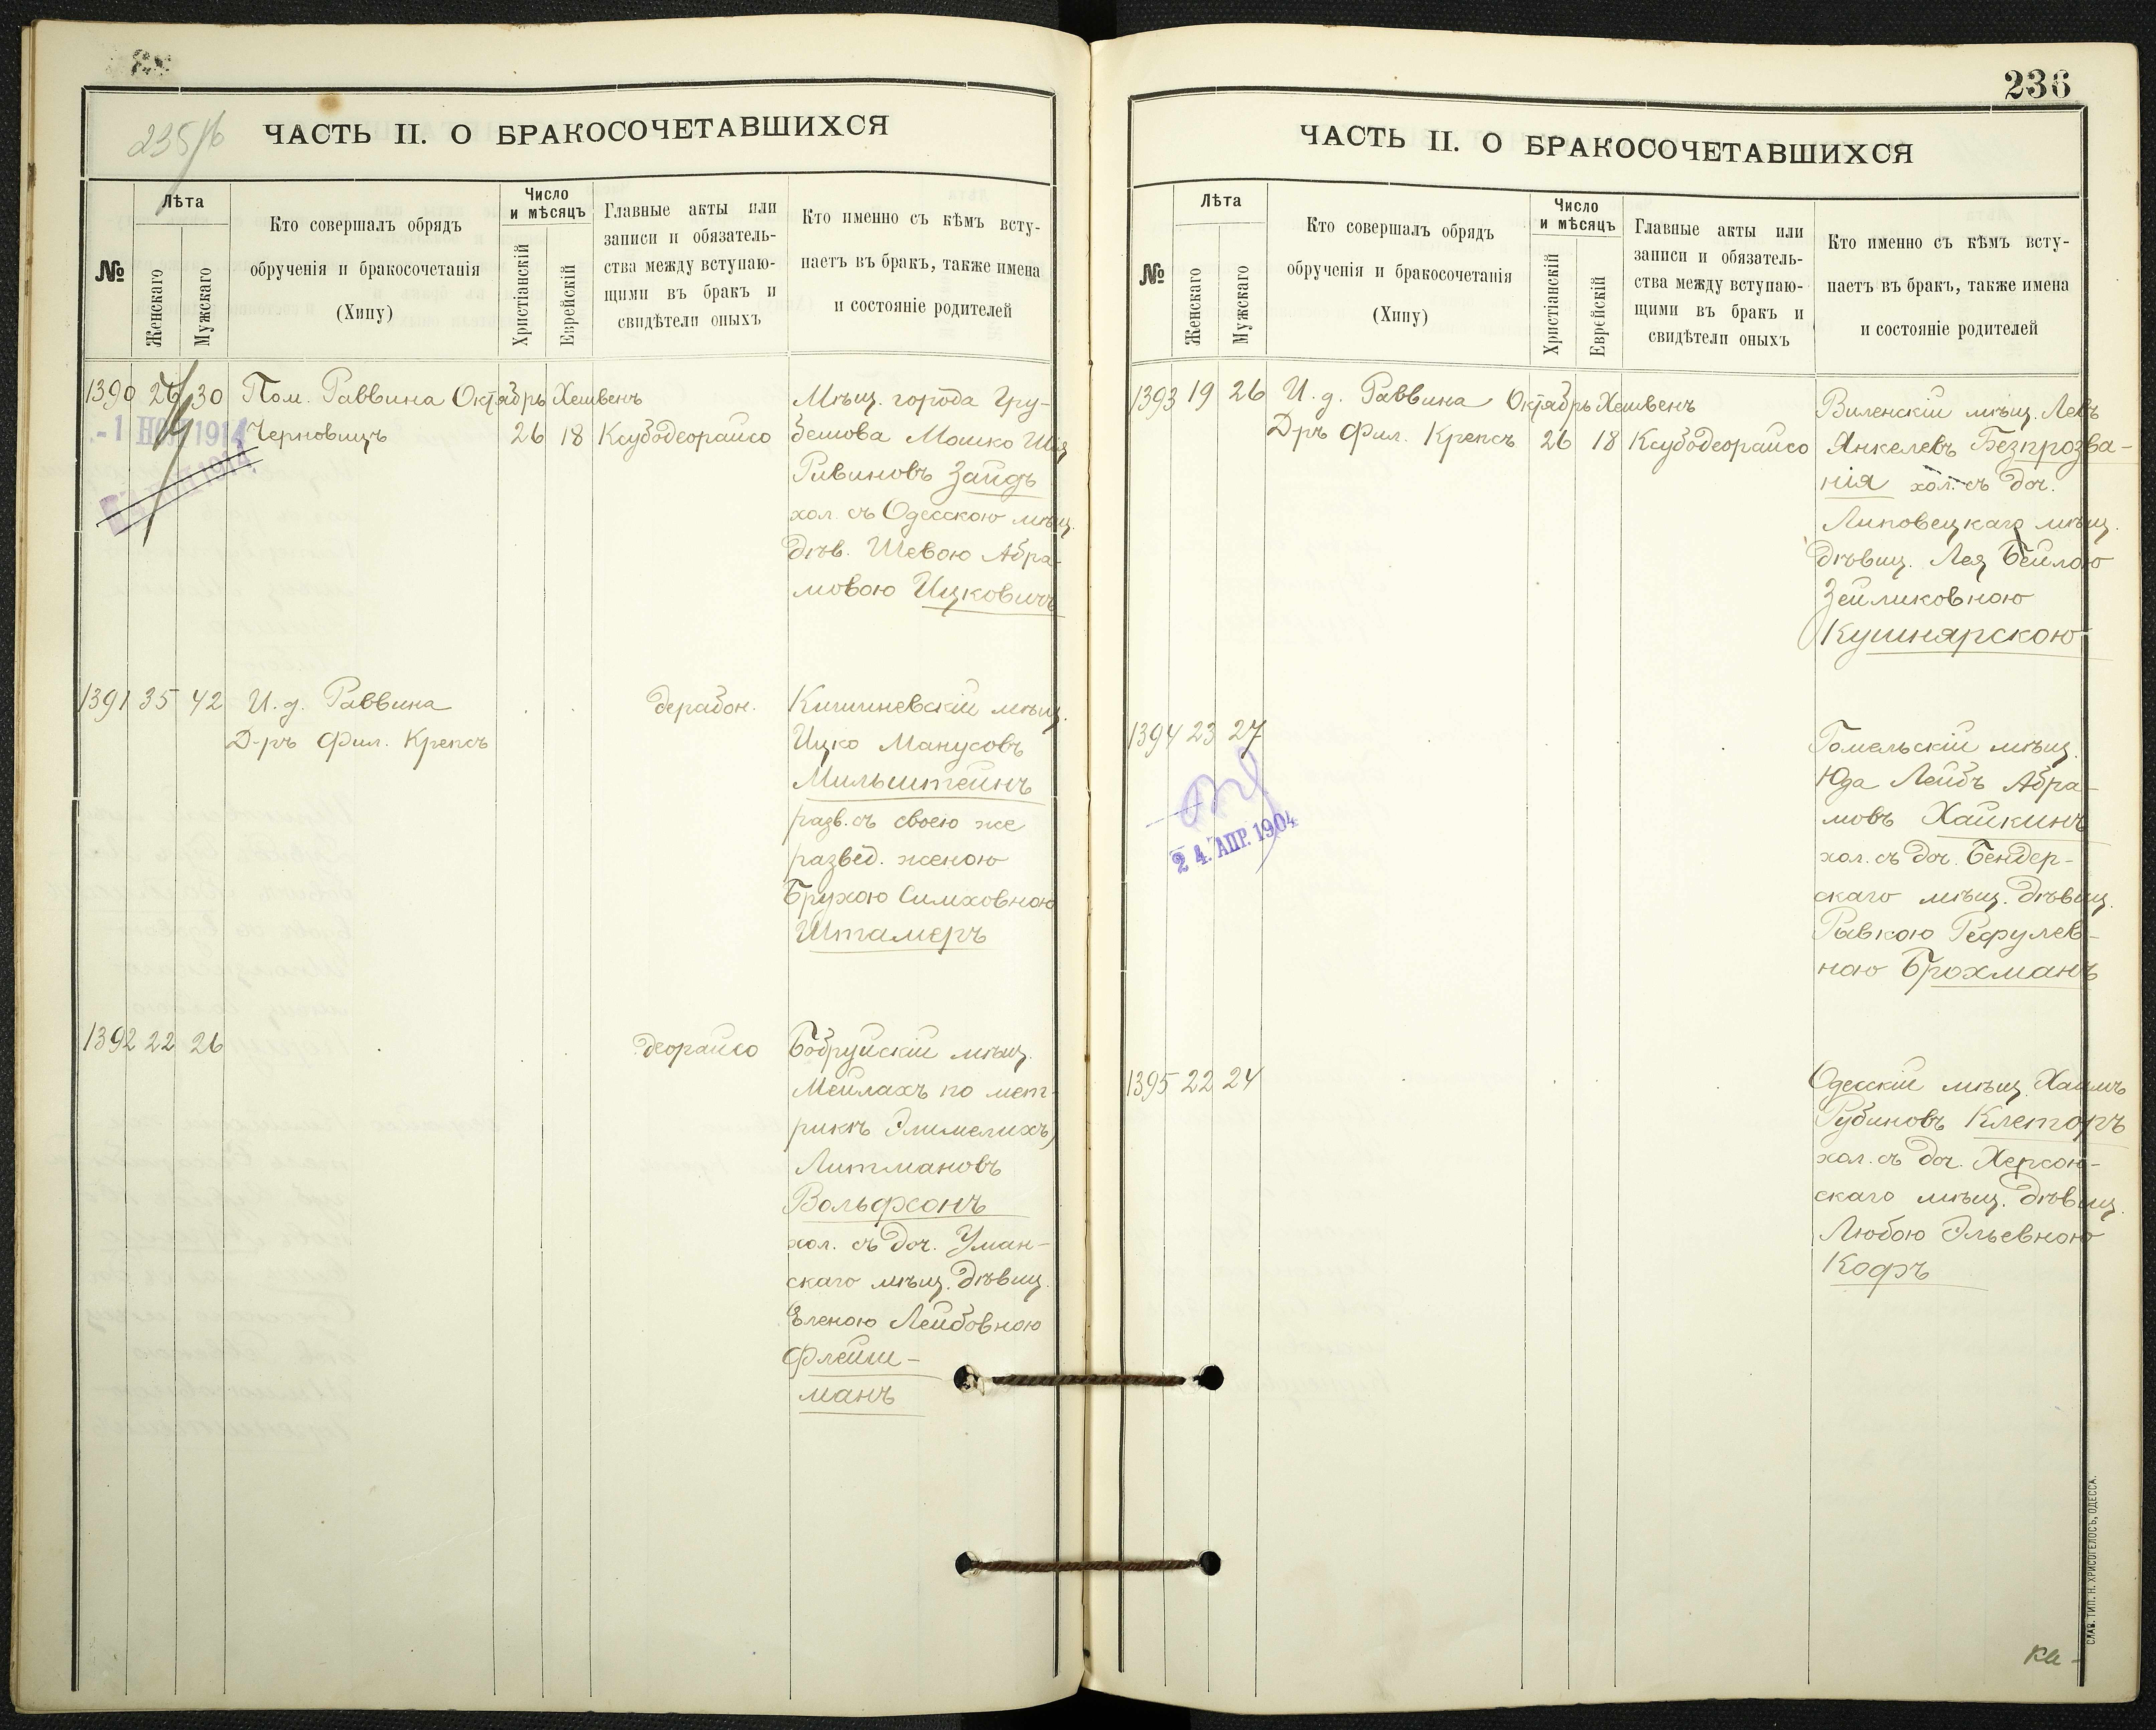 235/б
ЧАСТЬ II. О БРАКОСОЧЕТАВШИХСЯ
№
Лѣта
Женскаго
Мужскаго
Кто совершалъ обрядъ
обрученія и бракосочетанія
(Хипу)
Число
и мѣсяцъ
Христіанскій
Еврейскій
Главные акты или
записи и обязатель-
ства между вступаю-
щими въ бракъ и
свидѣтели оныхъ
Кто именно съ кѣмъ всту-
паетъ въ бракъ, также имена
и состояніе родителей
1390 26 30 Пом. Раввина Октябрь Хешвенъ Мѣщ. города Гру-
-1 1914 Черновицъ 26 18 Ксубодеорайсо бешова Мошко Шія
Рывиновъ Зайдъ
хол. съ Одесскою мѣщ.
дѣв. Шевою Абра-
мовою Ицковичъ
1391 35 42 И. д. Раввина дерабон. Кишиневскій мѣщ.
Д-ръ Фил. Крепсъ Ицко Манусовъ
Мильштейнъ
разв. съ своею же
развед. женою
Брухою Симховною
Штамеръ
1392 22 26 деорайсо Бобруйскій мѣщ.
Мейлахъ по мет-
рикѣ Элимелихъ)
Литмановъ
Вольфсонъ
хол. съ доч. Уман-
скаго мѣщ. дѣвиц.
Еленою Лейбовною
Флейш-
манъ
236
ЧАСТЬ II. О БРАКОСОЧЕТАВШИХСЯ
№
Лѣта
Женскаго
Мужскаго
Кто совершалъ обрядъ
обрученія и бракосочетанія
(Хипу)
Число
и мѣсяцъ
Христіанскій
Еврейскій
Главные акты или
записи и обязатель-
ства между вступаю-
щими въ бракъ и
свидѣтели оныхъ
Кто именно съ кѣмъ всту-
паетъ въ бракъ, также имена
и состояніе родителей
1393 19 26 И. д. Раввина Октябрь Хешвенъ Виленскій мѣщ. Левъ
Д-ръ Фил. Крепсъ 26 18 Ксубодеорайсо Янкелевъ Безпрозва-
нія хол. съ доч.
Липовецкаго мѣщ.
дѣвиц. Лея Бейлою
Зейликовною
Кушнярскою
1394 23 27 Гомельскій мѣщ.
Юда Лейбъ Абра-
24. АПР. 1904 мовъ Хайкинъ
хол. съ доч. Бендер-
скаго мѣщ. дѣвиц.
Рывкою Рефулев-
ною Брохманъ
1395 22 24 Одесскій мѣщ. Хаимъ
Рубиновъ Клеторъ
хол. съ доч. Херсон-
скаго мѣщ. дѣвиц.
Любою Эльевною
Кофъ
СЛАВ. ТИП. Н. ХРИСОГЕЛОСЪ, ОДЕССА.